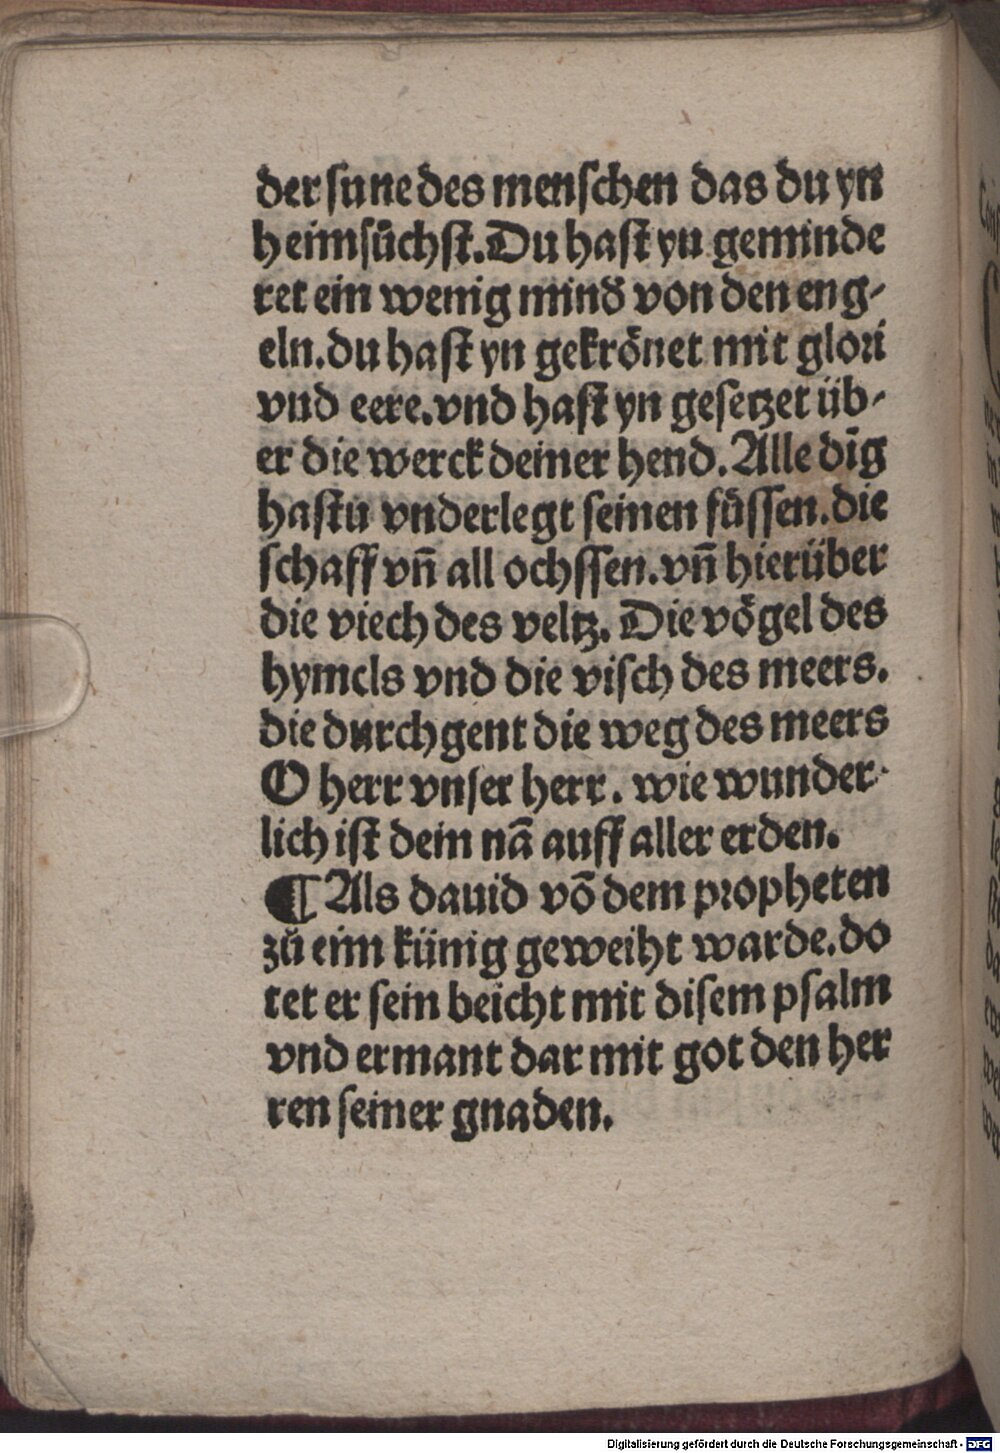 der sune des menschen das du yn
heimsůchst. Du hast yn geminde
ret ein wenig mind̕ von den eng-
eln. du hast yn gekrönet mit glori
vnd eere. vnd hast yn gesetzet üb-
er die werck deiner hend. Alle dīg
hastu vnderlegt seinen füssen. die
schaff vn̄ all ochssen. vn̄ hierüber
die viech des veltz. Die vögel des
hymels vnd die visch des meers.
die durch gent die weg des meers
O herr vnser herr. wie wunder-
lich ist dein nā auff aller erden.
¶ Als dauid vō dem propheten
zů eim künig geweiht warde. do
tet er sein beicht mit disem psalm
vnd ermant dar mit got den her
ren seiner gnaden.
Digitalisierung gefördert durch die Deutsche Forschungsgemeinschaft - DFG